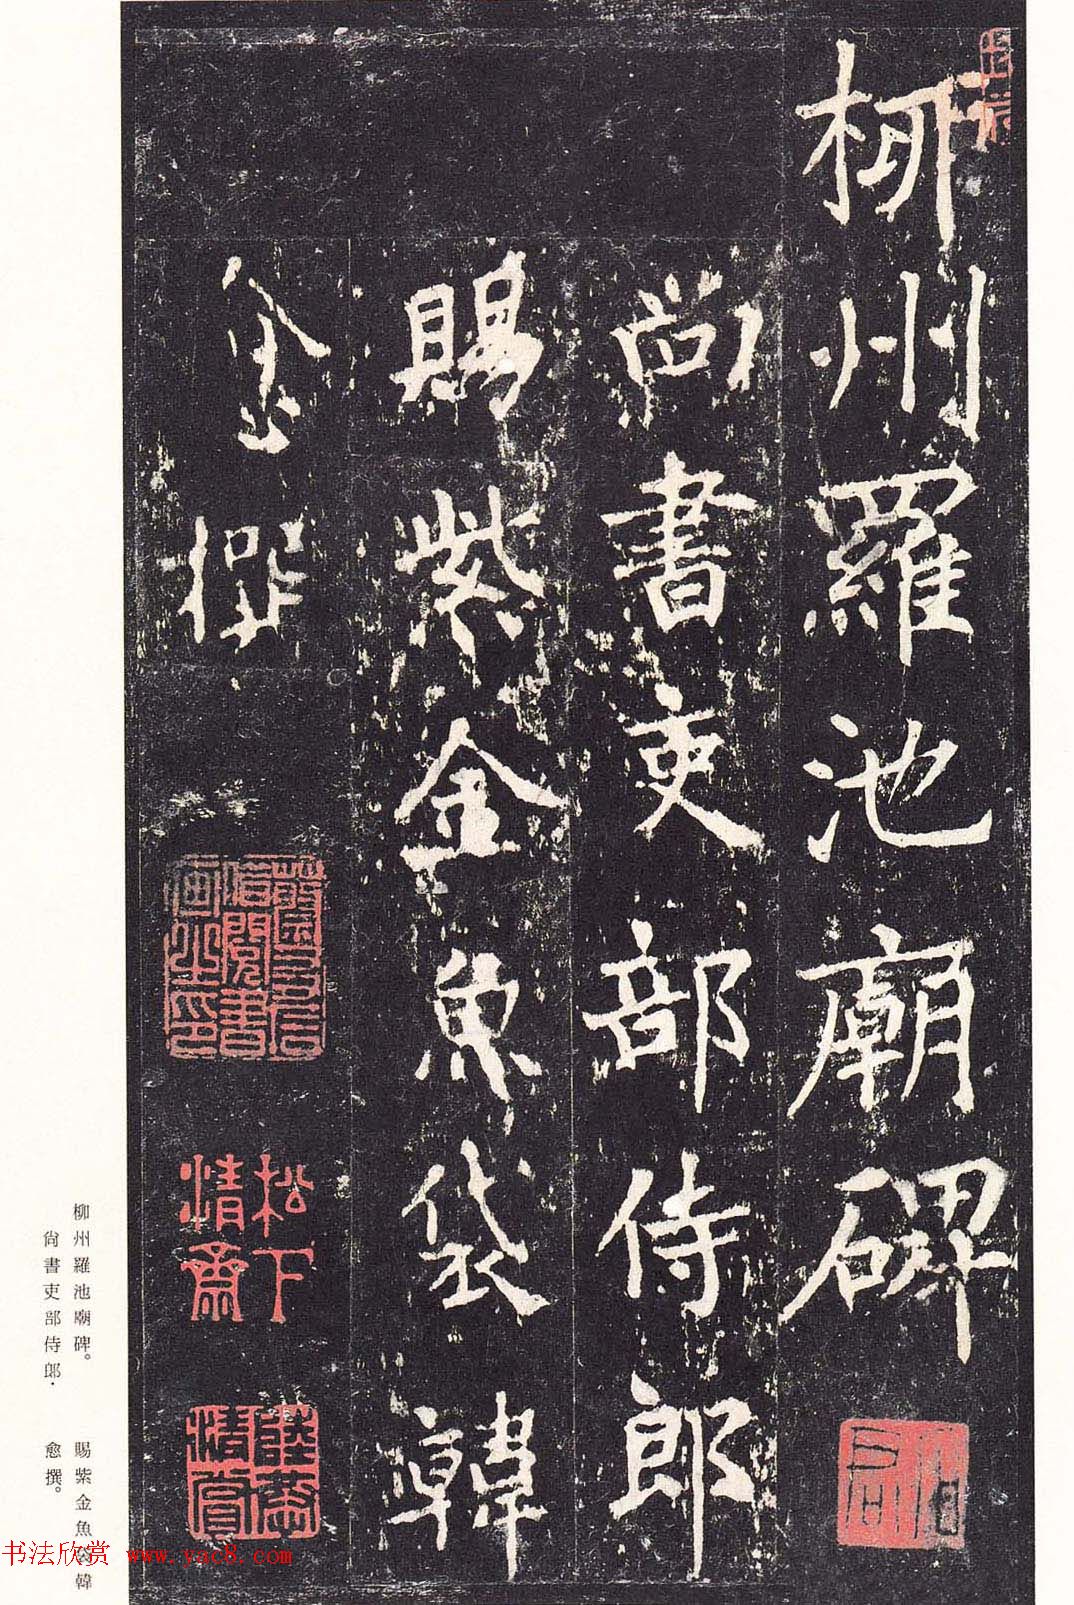 柳州羅池廟碑
尚書吏部侍郎
賜紫金魚袋韓
愈撰
松下
清齋
柳州羅池廟碑。
尚書吏部侍郎·
賜紫金魚袋韓
愈撰。
书法欣赏 www.yac8.com